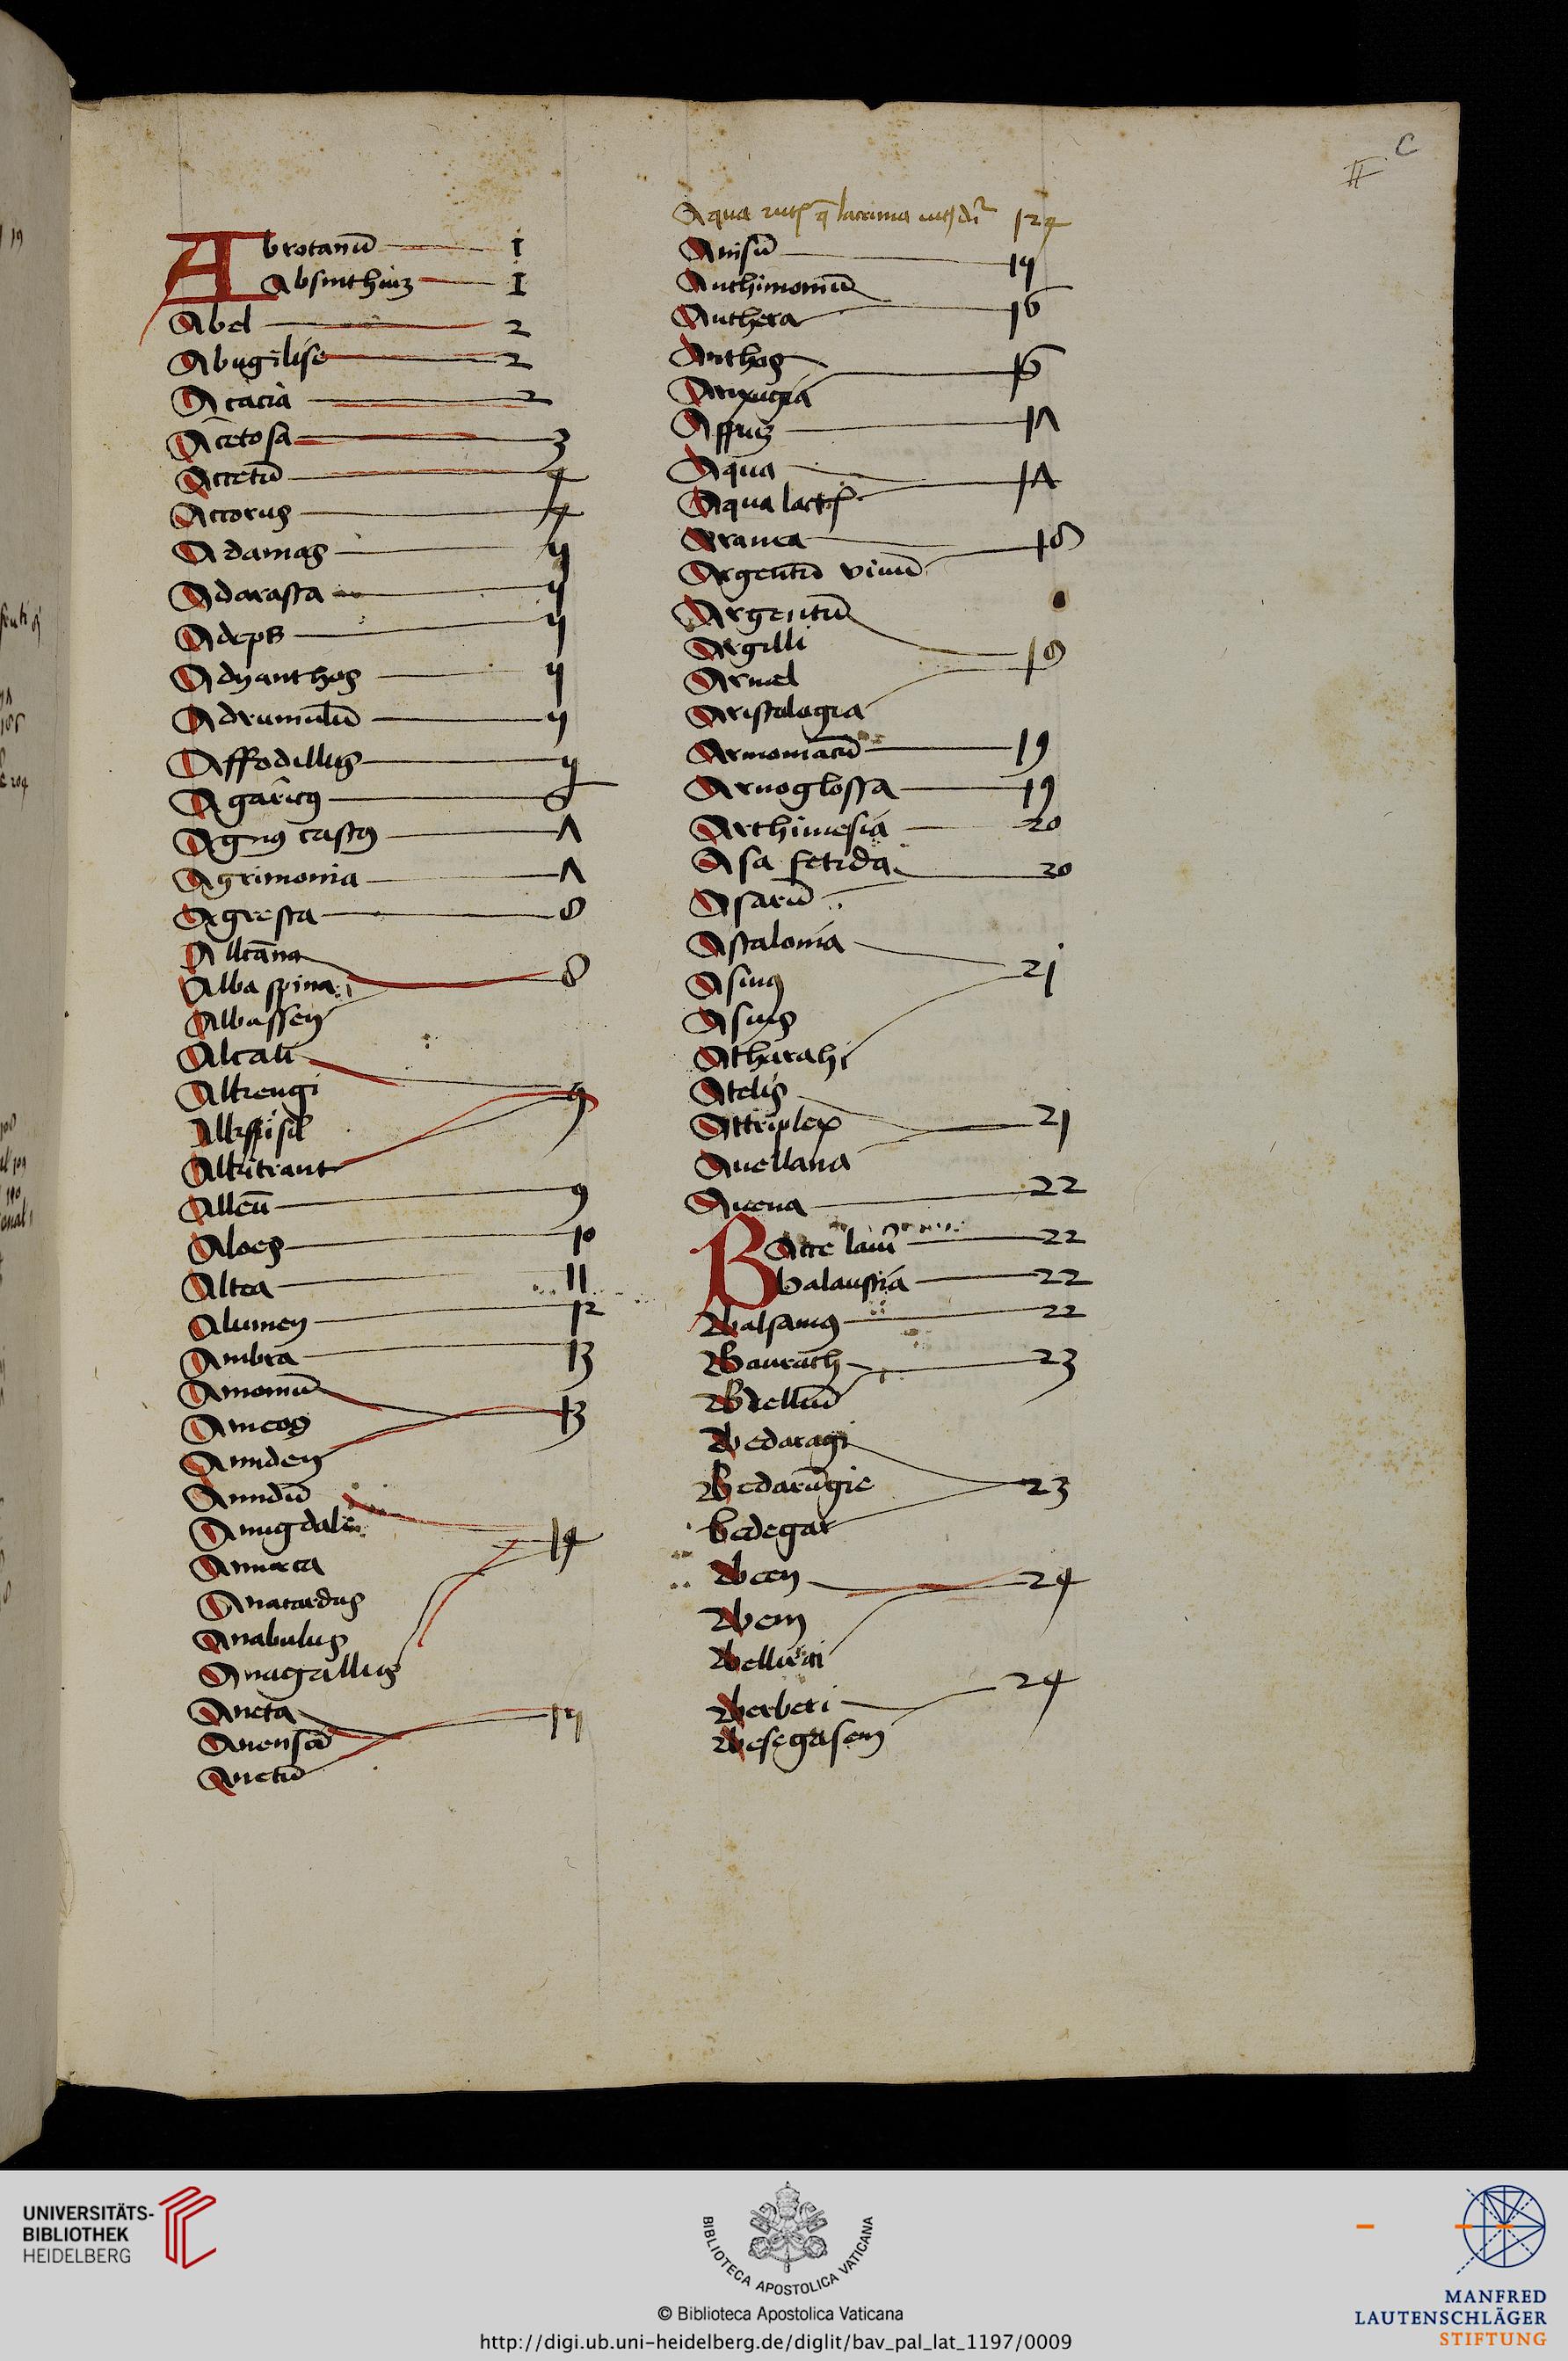 C
II
Abrotanū 1
Absinthiuz 1
Abel 2
Abugilise 2
Acacia 2
Acetosa 3
Accetū 4
Accorus 4
Adamas 5
Adarasca 5
Adeps 5
Adyanthos 5
Affodillus 5
Agaricꝰ 6
Agnꝰ castꝰ 7
Agrimonia 7
Agresta 8
Alcāna
Alba spina 8
Albassen
Alcali
Alkengi
Alkitrant 9
Alleū 9
Aloes 10
Altea 11
Alumen 12
Ambra 13
Amomū
Ameos 13
Amiden
Amidū
Amigdale
Amurca 14
Anacardus
Anabulus
Anagallus
Aneta
Anensa 15
Anetū
Aqua lacrima 124
Anisū 15
Anthimoniū
Anthera 16
Anthos
Axungia 16
Affruz 17
Aqua
Aqua lact 17
Aranea
Argentū vivū 18
Argentū
Argilli
Arnel 18
Aristologia
Armoniacū 19
Arnoglossa 19
Arthimesia 20
Asa fetida 20
Asarū
Ascalonia
Asinꝰ 21
Asius
Atharahi
Atelis
Attriplex 21
Avellana
Avena 22
Bacce lauri 22
balaustia 22
Balsamꝰ 22
Baurach 23
Bdelliū
Bedaragi
Bedarūgie 23
bedegar
Been 24
Bem
Belliric
Berberi 24
Besegasem
UNIVERSITÄTS-
BIBLIOTHEK
HEIDELBERG
BIBLIOTECA APOSTOLICA VATICANA
© Biblioteca Apostolica Vaticana
http://digi.ub.uni-heidelberg.de/diglit/bav_pal_lat_1197/0009
MANFRED
LAUTENSCHLÄGER
STIFTUNG